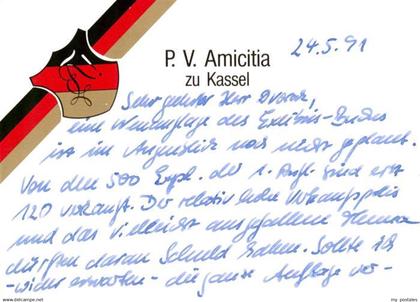 P. V. Amicitia
zu Kassel
24.5.91
Sehr geehrter Herr Dvorak,
eine Neuauflage des Exlibris-Buches
ist im Augenblick noch nicht geplant.
Von den 500 Expl. der 1. Aufl. sind erst
120 verkauft. Der relativ hohe Verkaufspreis
und das vielleicht ausgefallene Thema
dürften daran Schuld haben. Sollte ich
-wider erwarten- die ganze Auflage ver-